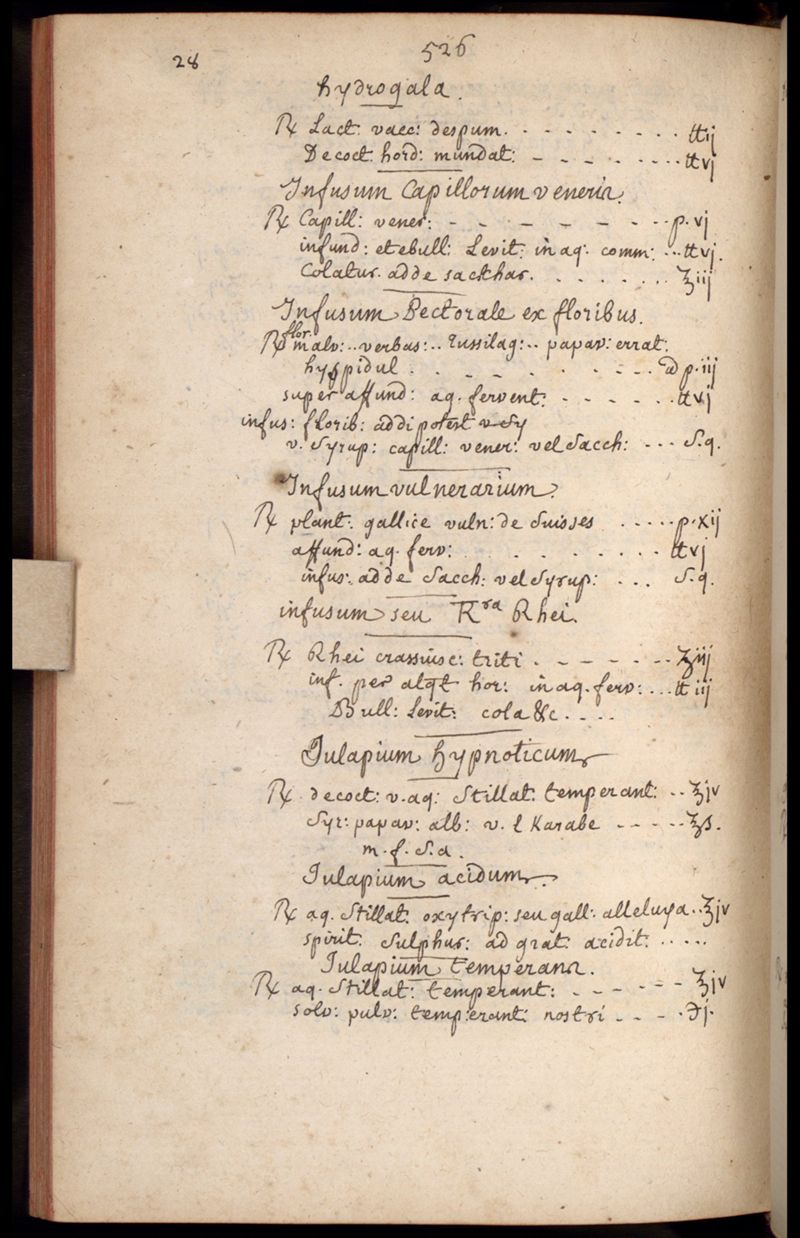 526
28
hydrogala.
℞ Lact: vacc: despum. . - - - - - . . . ℔ij
Decoct: hord: mundat: - - - - . . . . ℔vj
Infusum Capillorum veneris.
℞ Capill: vener: - - - - - - - . . p. vj
infund: et ebull: Levit: in aq. comm: . . . ℔vj.
Colatur. adde sacchar. . . . . . . ℥iij
Infusum Pectorale ex floribus.
℞ flor. malv: .. verbas: .. Tussilag: .. papav: errat:
hyspidul . . - - - . . - - . . ā p. iij
super affund: aq. fervent: . - - - . . ℔vj
infus: florib: addi potest
v. Syrup: capill: vener: vel Sacch: - . . S.q.
Infusum vulnerarium
℞ plant. gallice vuln: de Suisses . . . . . p. xij
affund: aq. ferv: . . . . . . . . ℔vj
infus: adde Sacch: vel Syrup: . . . S.q.
infusum seu Rra Rhei.
℞ Rhei crassiusc: triti . - - - - - . . ʒiij
inf. per alqt hor: in aq. ferv: . . . ℔iij
Bull: Levit: cola &c. . . .
Julapium hypnoticum
℞ decoct: v. aq: Stillat: temperant: . . ℥jv
Syr: papav: alb: v. Karabe - - - . . ℥s.
m. f. S. a.
Julapium acidum
℞ aq. Stillat: oxytrip: seu gall: alleluya . . ℥jv
spirit: Sulphur: ad grat: acidit: . . . . .
Julapium temperans.
℞ aq. Stillat: temperant: . - - - - - ℥jv
solv: pulv: temperant: nostri - - - . ℈j.